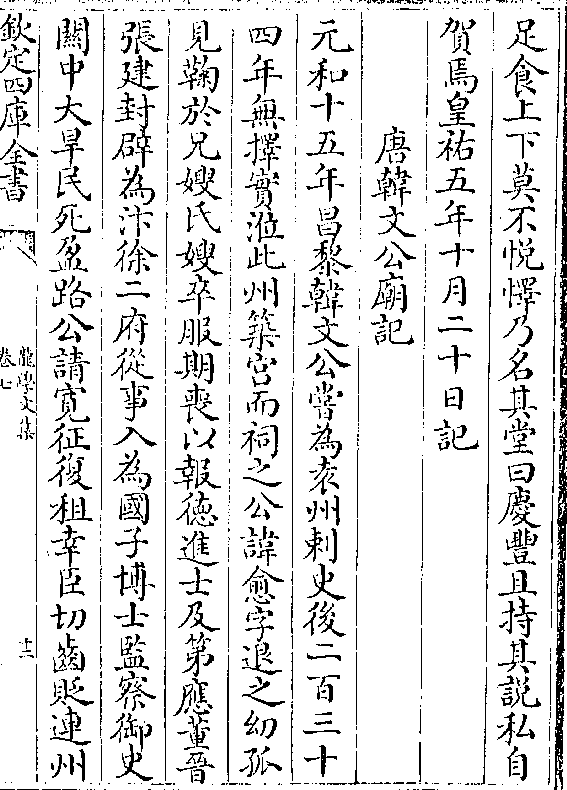 足食上下莫不悦懌乃名其堂曰慶豐且持其説私自
賀焉皇祐五年十月二十日記
唐韓文公廟記
元和十五年昌黎韓文公嘗為袁州刺史後二百三十
四年無擇實涖此州築宫而祠之公諱愈字退之幼孤
見鞠於兄嫂氏嫂卒服期喪以報徳進士及第應董晉
張建封辟為汴徐二府從事入為國子博士監察御史
關中大旱民死盈路公請寛征復租幸臣切齒貶連州
欽定四庫全書
龍學文集
卷七
十二